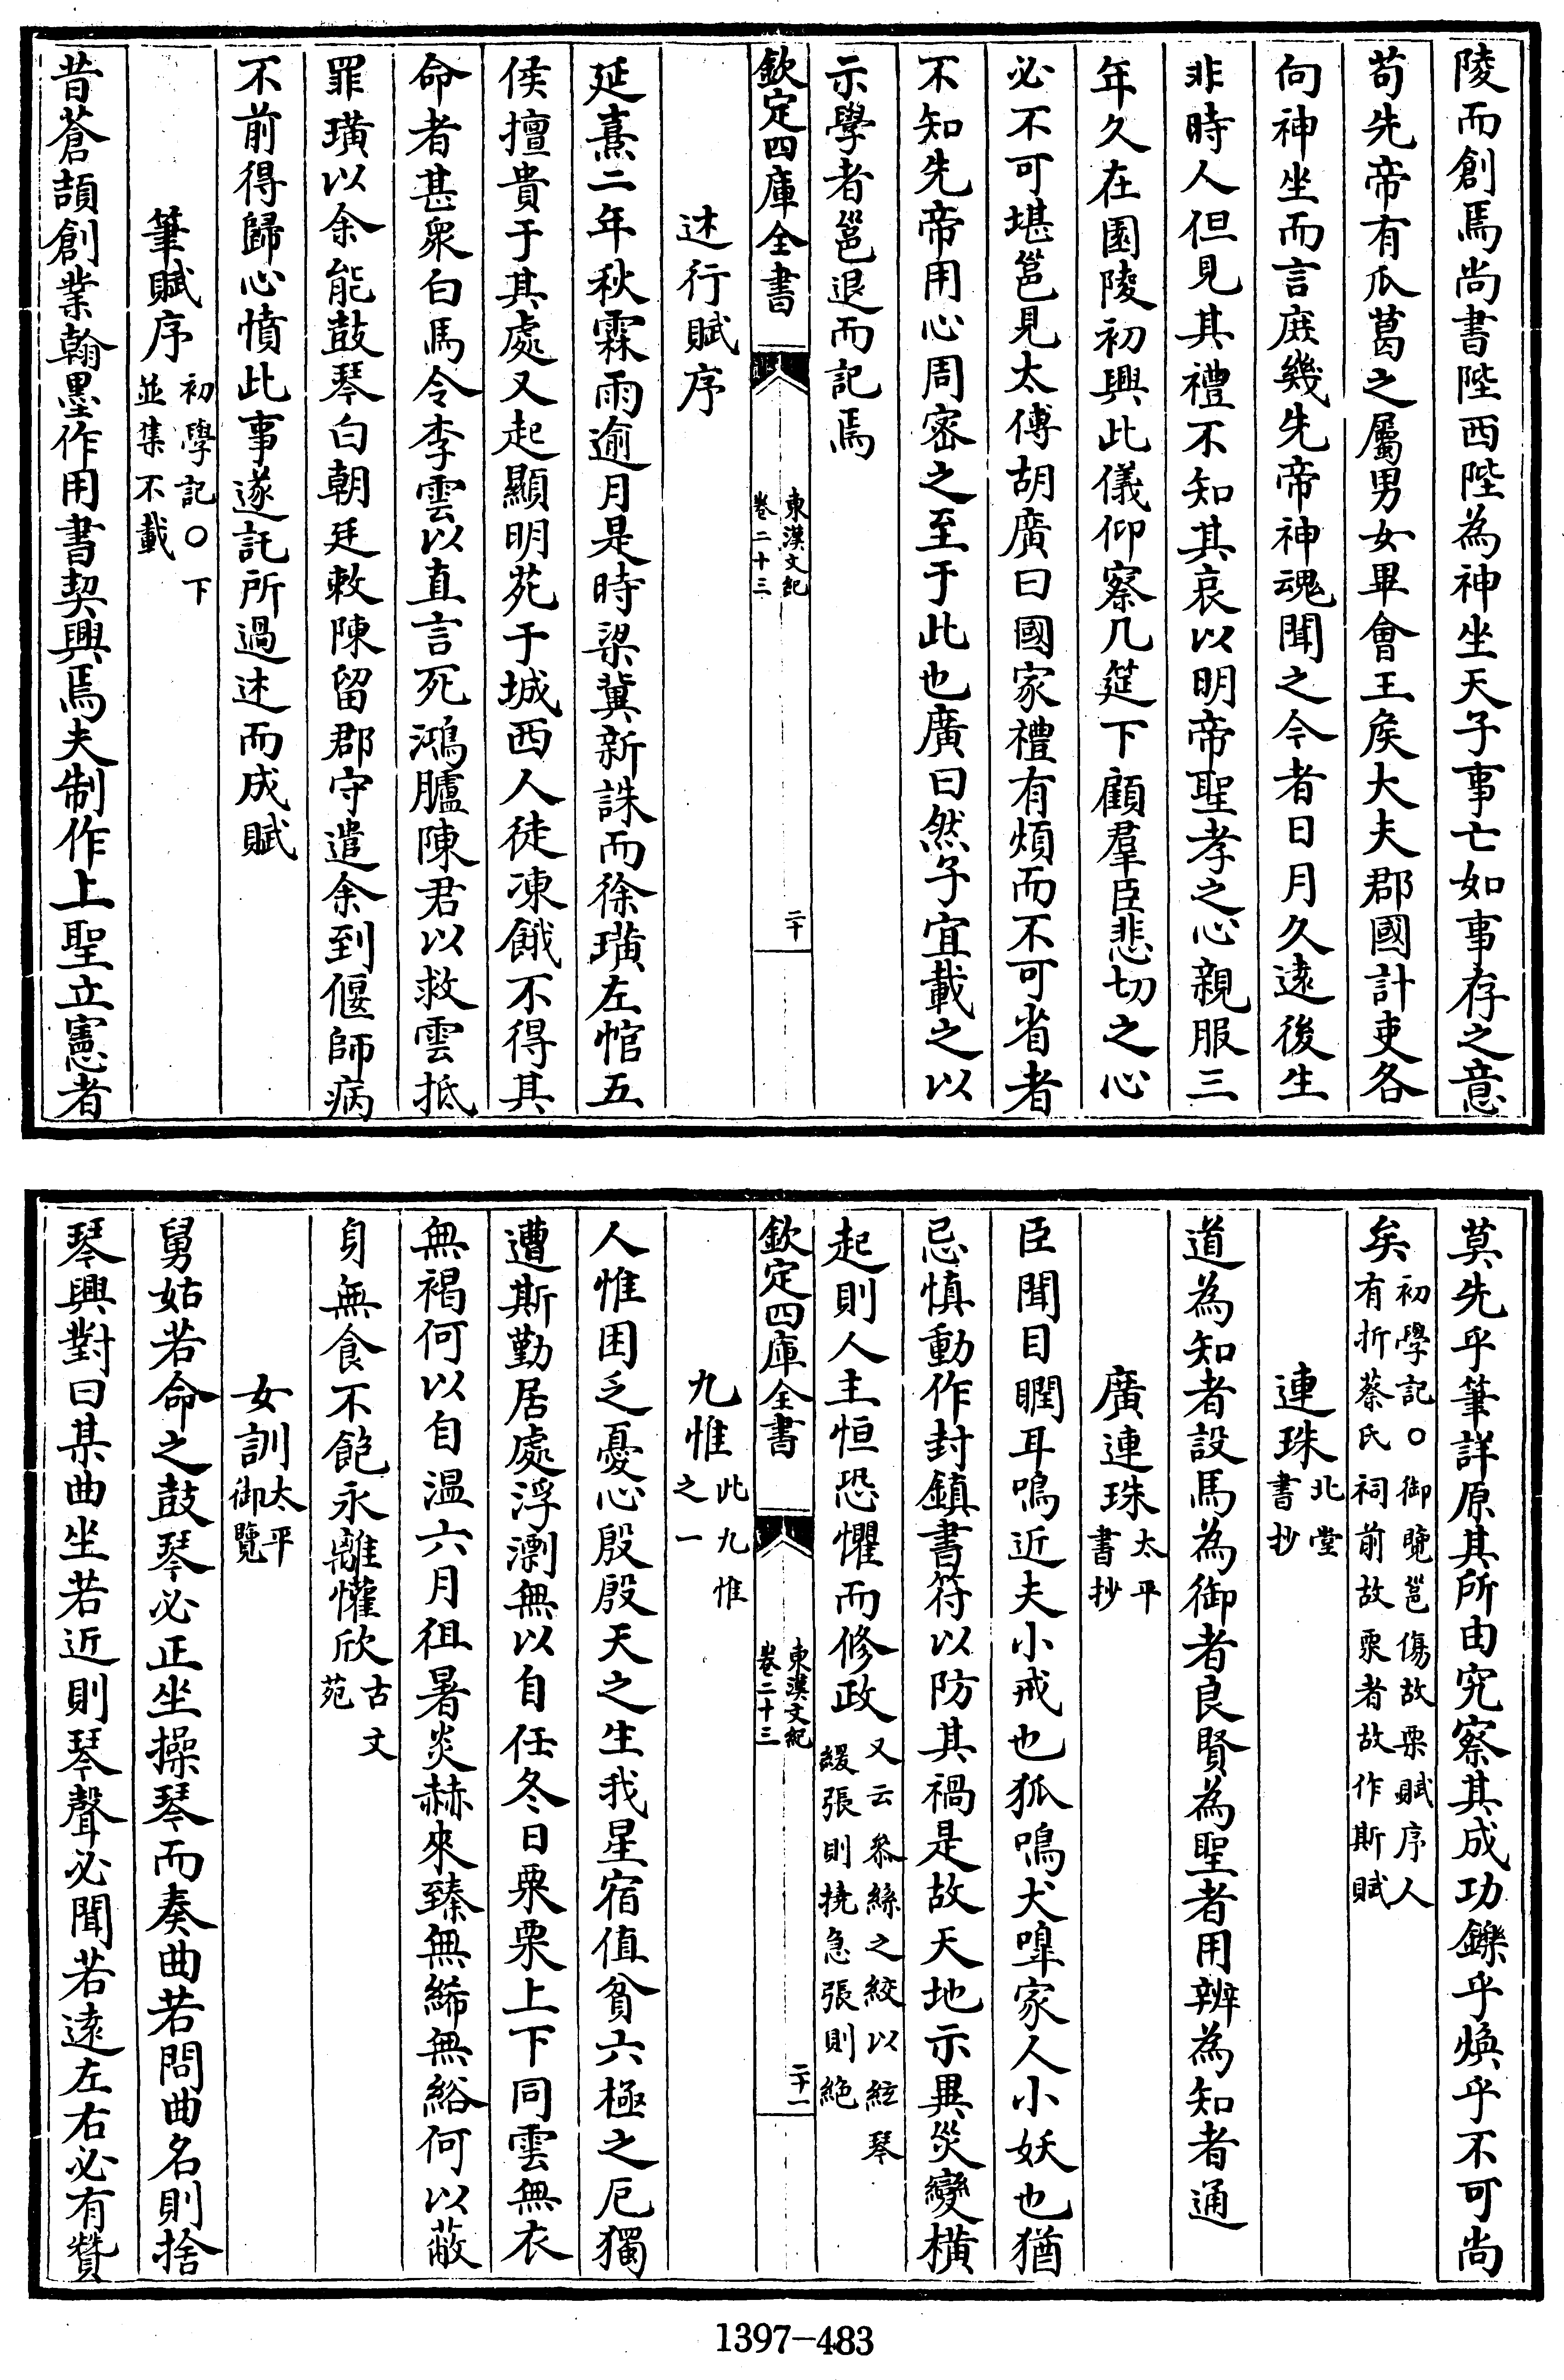 陵而創焉尚書陛西陛為神坐天子事亡如事存之意
苟先帝有瓜葛之屬男女畢會王侯大夫郡國計吏各
向神坐而言庶幾先帝神魂聞之今者日月久遠後生
非時人但見其禮不知其哀以明帝聖孝之心親服三
年久在園陵初興此儀仰察几筵下顧羣臣悲切之心
必不可堪邕見太傅胡廣曰國家禮有煩而不可省者
不知先帝用心周密之至于此也廣曰然子宜載之以
示學者邕退而記焉
欽定四庫全書
東漢文紀
卷二十三
二十
述行賦序
延熹二年秋霖雨逾月是時梁冀新誅而徐璜左悺五
侯擅貴于其處又起顯明苑于城西人徒凍餓不得其
命者甚衆白馬令李雲以直言死鴻臚陳君以救雲抵
罪璜以余能鼓琴白朝廷敕陳留郡守遣余到偃師病
不前得歸心憤此事遂託所過述而成賦
筆賦序初學記○下
並集不載
昔蒼頡創業翰墨作用書契興焉夫制作上聖立憲者
莫先乎筆詳原其所由究察其成功鑠乎煥乎不可尚
矣初學記○御覽邕傷故栗賦序人
有折蔡氏祠前故栗者故作斯賦
連珠北堂
書抄
道為知者設馬為御者良賢為聖者用辨為知者通
廣連珠太平
書抄
臣聞目瞤耳鳴近夫小戒也狐鳴犬嘷家人小妖也猶
忌慎動作封鎮書符以防其禍是故天地示異災變橫
起則人主恒恐懼而修政又云參絲之絞以絃琴
緩張則撓急張則絶
欽定四庫全書
東漢文紀
卷二十三
二十一
九惟此九惟
之一
人惟困乏憂心殷殷天之生我星宿值貧六極之厄獨
遭斯勤居處浮漂無以自任冬日栗栗上下同雲無衣
無褐何以自温六月徂暑炎赫來臻無絺無綌何以蔽
身無食不飽永離懽欣古文
苑
女訓太平
御覽
舅姑若命之鼓琴必正坐操琴而奏曲若問曲名則捨
琴興對曰某曲坐若近則琴聲必聞若遠左右必有贊
1397-483